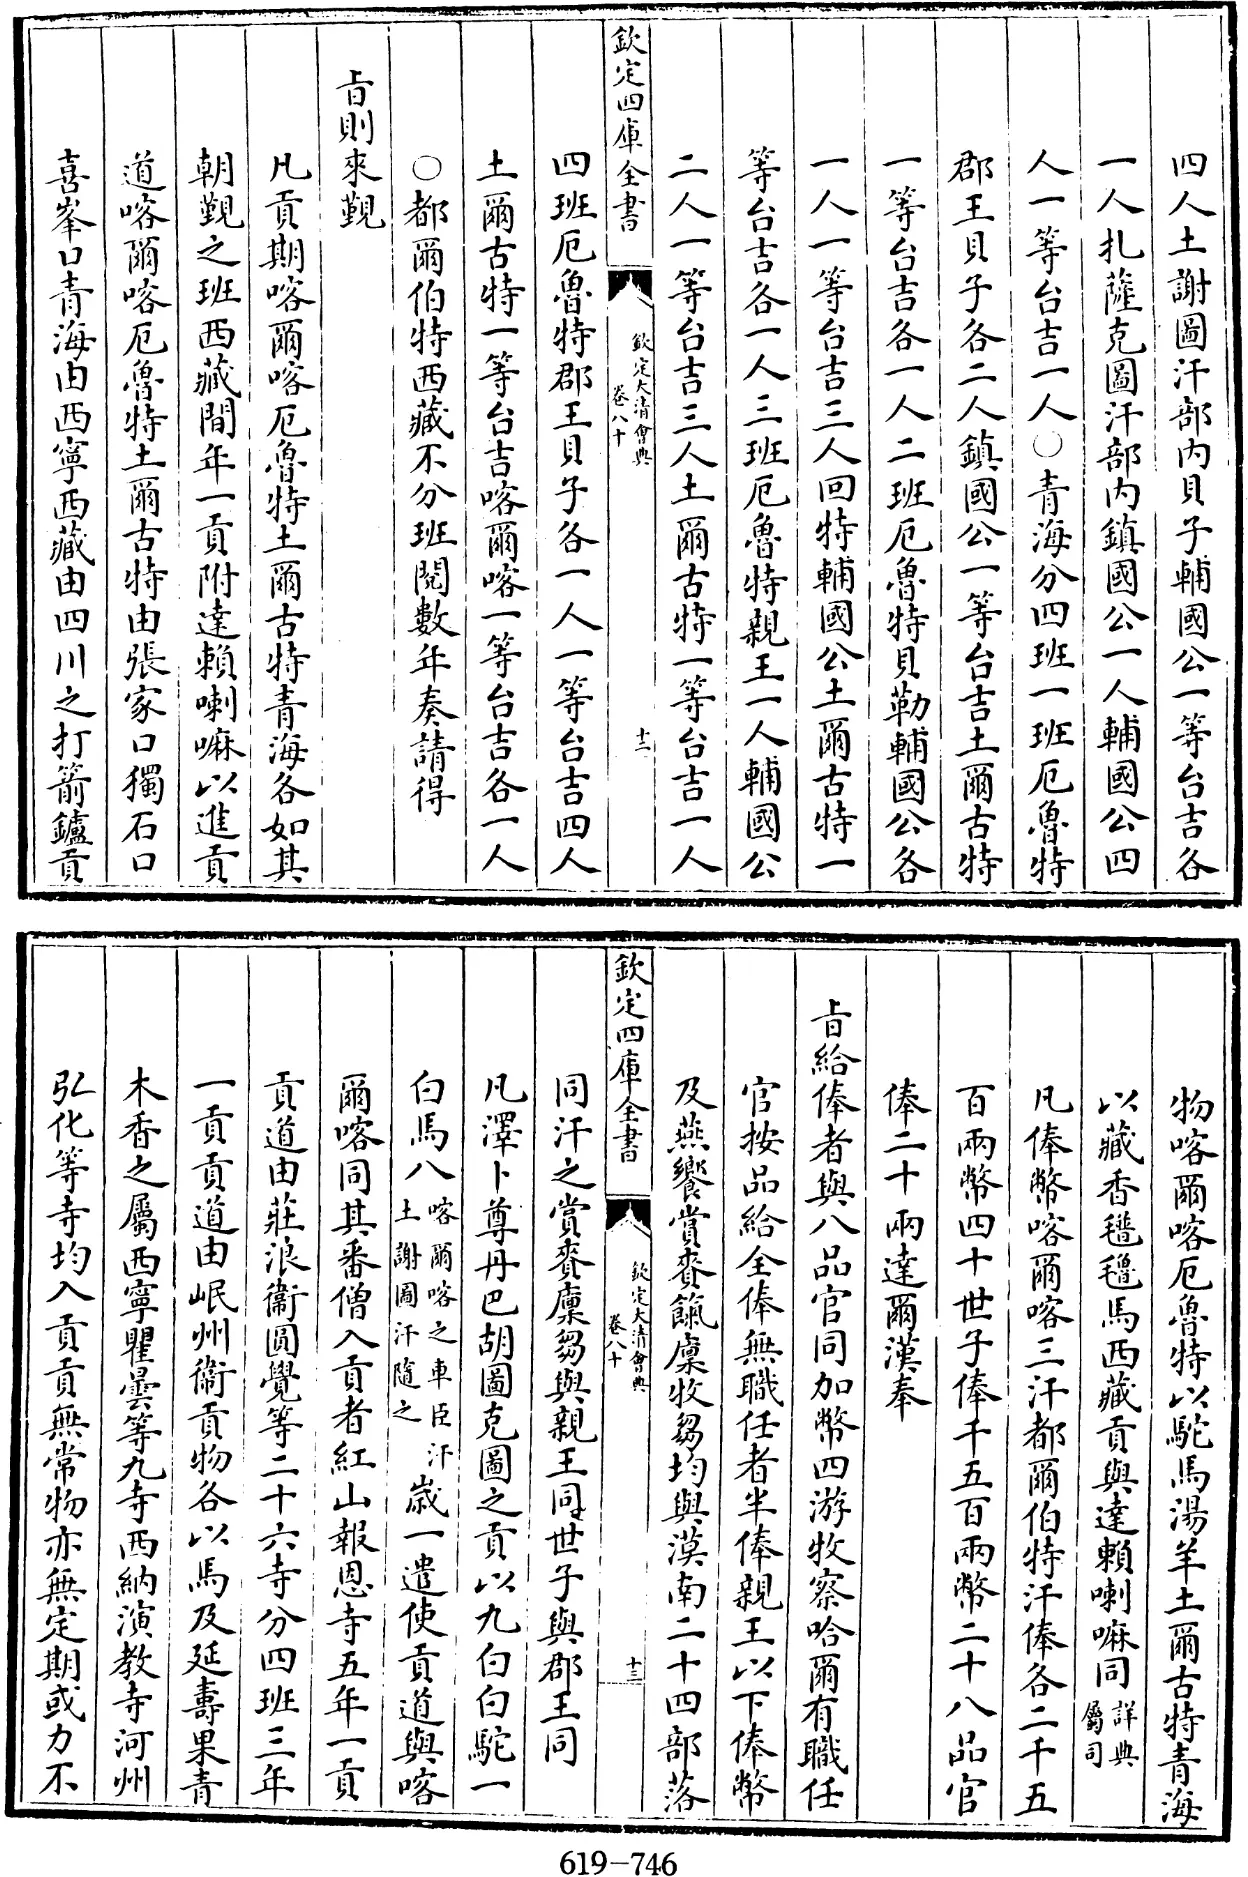 四人土謝圖汗部内貝子輔國公一等台吉各
一人扎薩克圖汗部内鎮國公一人輔國公四
人一等台吉一人○青海分四班一班厄魯特
郡王貝子各二人鎮國公一等台吉土爾古特
一等台吉各一人二班厄魯特貝勒輔國公各
一人一等台吉三人回特輔國公土爾古特一
等台吉各一人三班厄魯特親王一人輔國公
二人一等台吉三人土爾古特一等台吉一人
欽定四庫全書
欽定大清會典
卷八十
十二
四班厄魯特郡王貝子各一人一等台吉四人
土爾古特一等台吉喀爾喀一等台吉各一人
○都爾伯特西藏不分班閱數年奏請得
旨則來覲
凡貢期喀爾喀厄魯特土爾古特青海各如其
朝覲之班西藏間年一貢附達賴喇嘛以進貢
道喀爾喀厄魯特土爾古特由張家口獨石口
喜峯口青海由西寧西藏由四川之打箭鑪貢
物喀爾喀厄魯特以駝馬湯羊土爾古特青海
以藏香氆氇馬西藏貢與達賴喇嘛同詳典
屬司
凡俸幣喀爾喀三汗都爾伯特汗俸各二千五
百兩幣四十世子俸千五百兩幣二十八品官
俸二十兩達爾漢奉
旨給俸者與八品官同加幣四游牧察哈爾有職任
官按品給全俸無職任者半俸親王以下俸幣
及燕饗賞賚餼廩牧芻均與漠南二十四部落
欽定四庫全書
欽定大清會典
卷八十
十三
同汗之賞賚廩芻與親王同世子與郡王同
凡澤卜尊丹巴胡圖克圖之貢以九白白駝一
白馬八喀爾喀之車臣汗
土謝圖汗隨之歲一遣使貢道與喀
爾喀同其番僧入貢者紅山報恩寺五年一貢
貢道由莊浪衞圓覺等二十六寺分四班三年
一貢貢道由岷州衞貢物各以馬及延壽果青
木香之屬西寧瞿曇等九寺西納演教寺河州
弘化等寺均入貢貢無常物亦無定期或力不
619-746